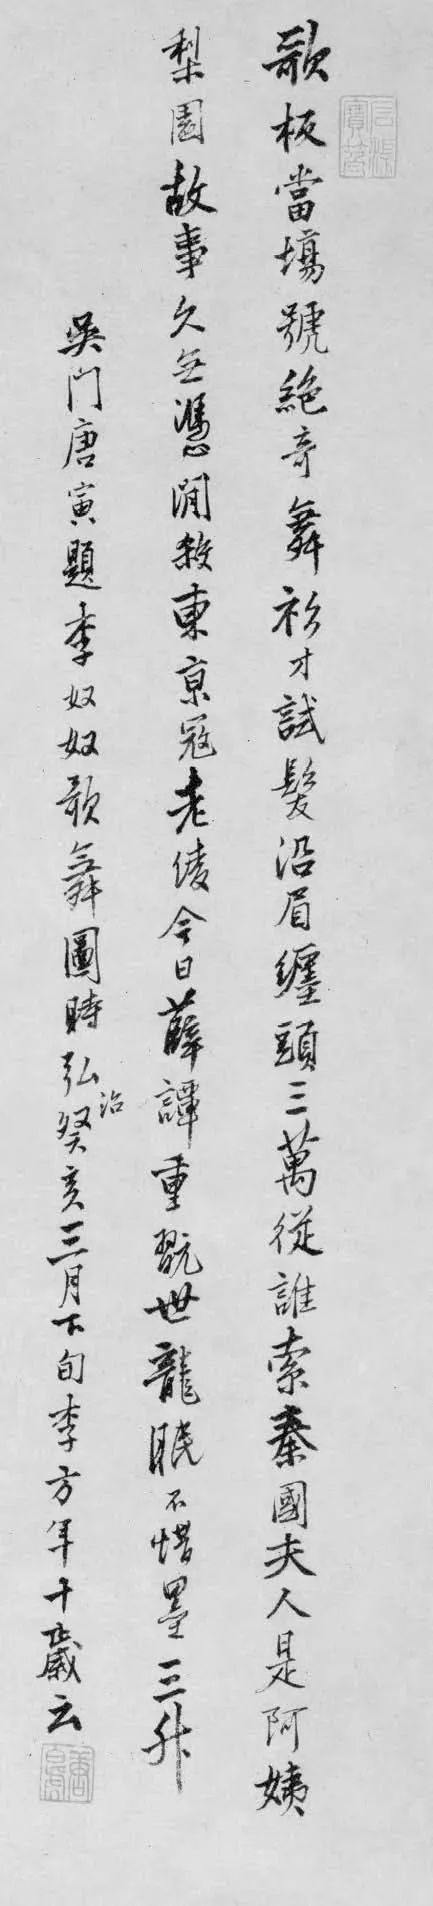 石渠寶笈
歌板當場號絕奇舞衫才試髮沿眉纏頭三萬從誰索秦國夫人是阿姨
梨園故事久無憑閒殺東京冠老倰今日薛譚重翫世龍眠不惜墨三升
吳門唐寅題李奴奴歌舞圖時弘治癸亥三月下旬李方年十歲云
唐白虎